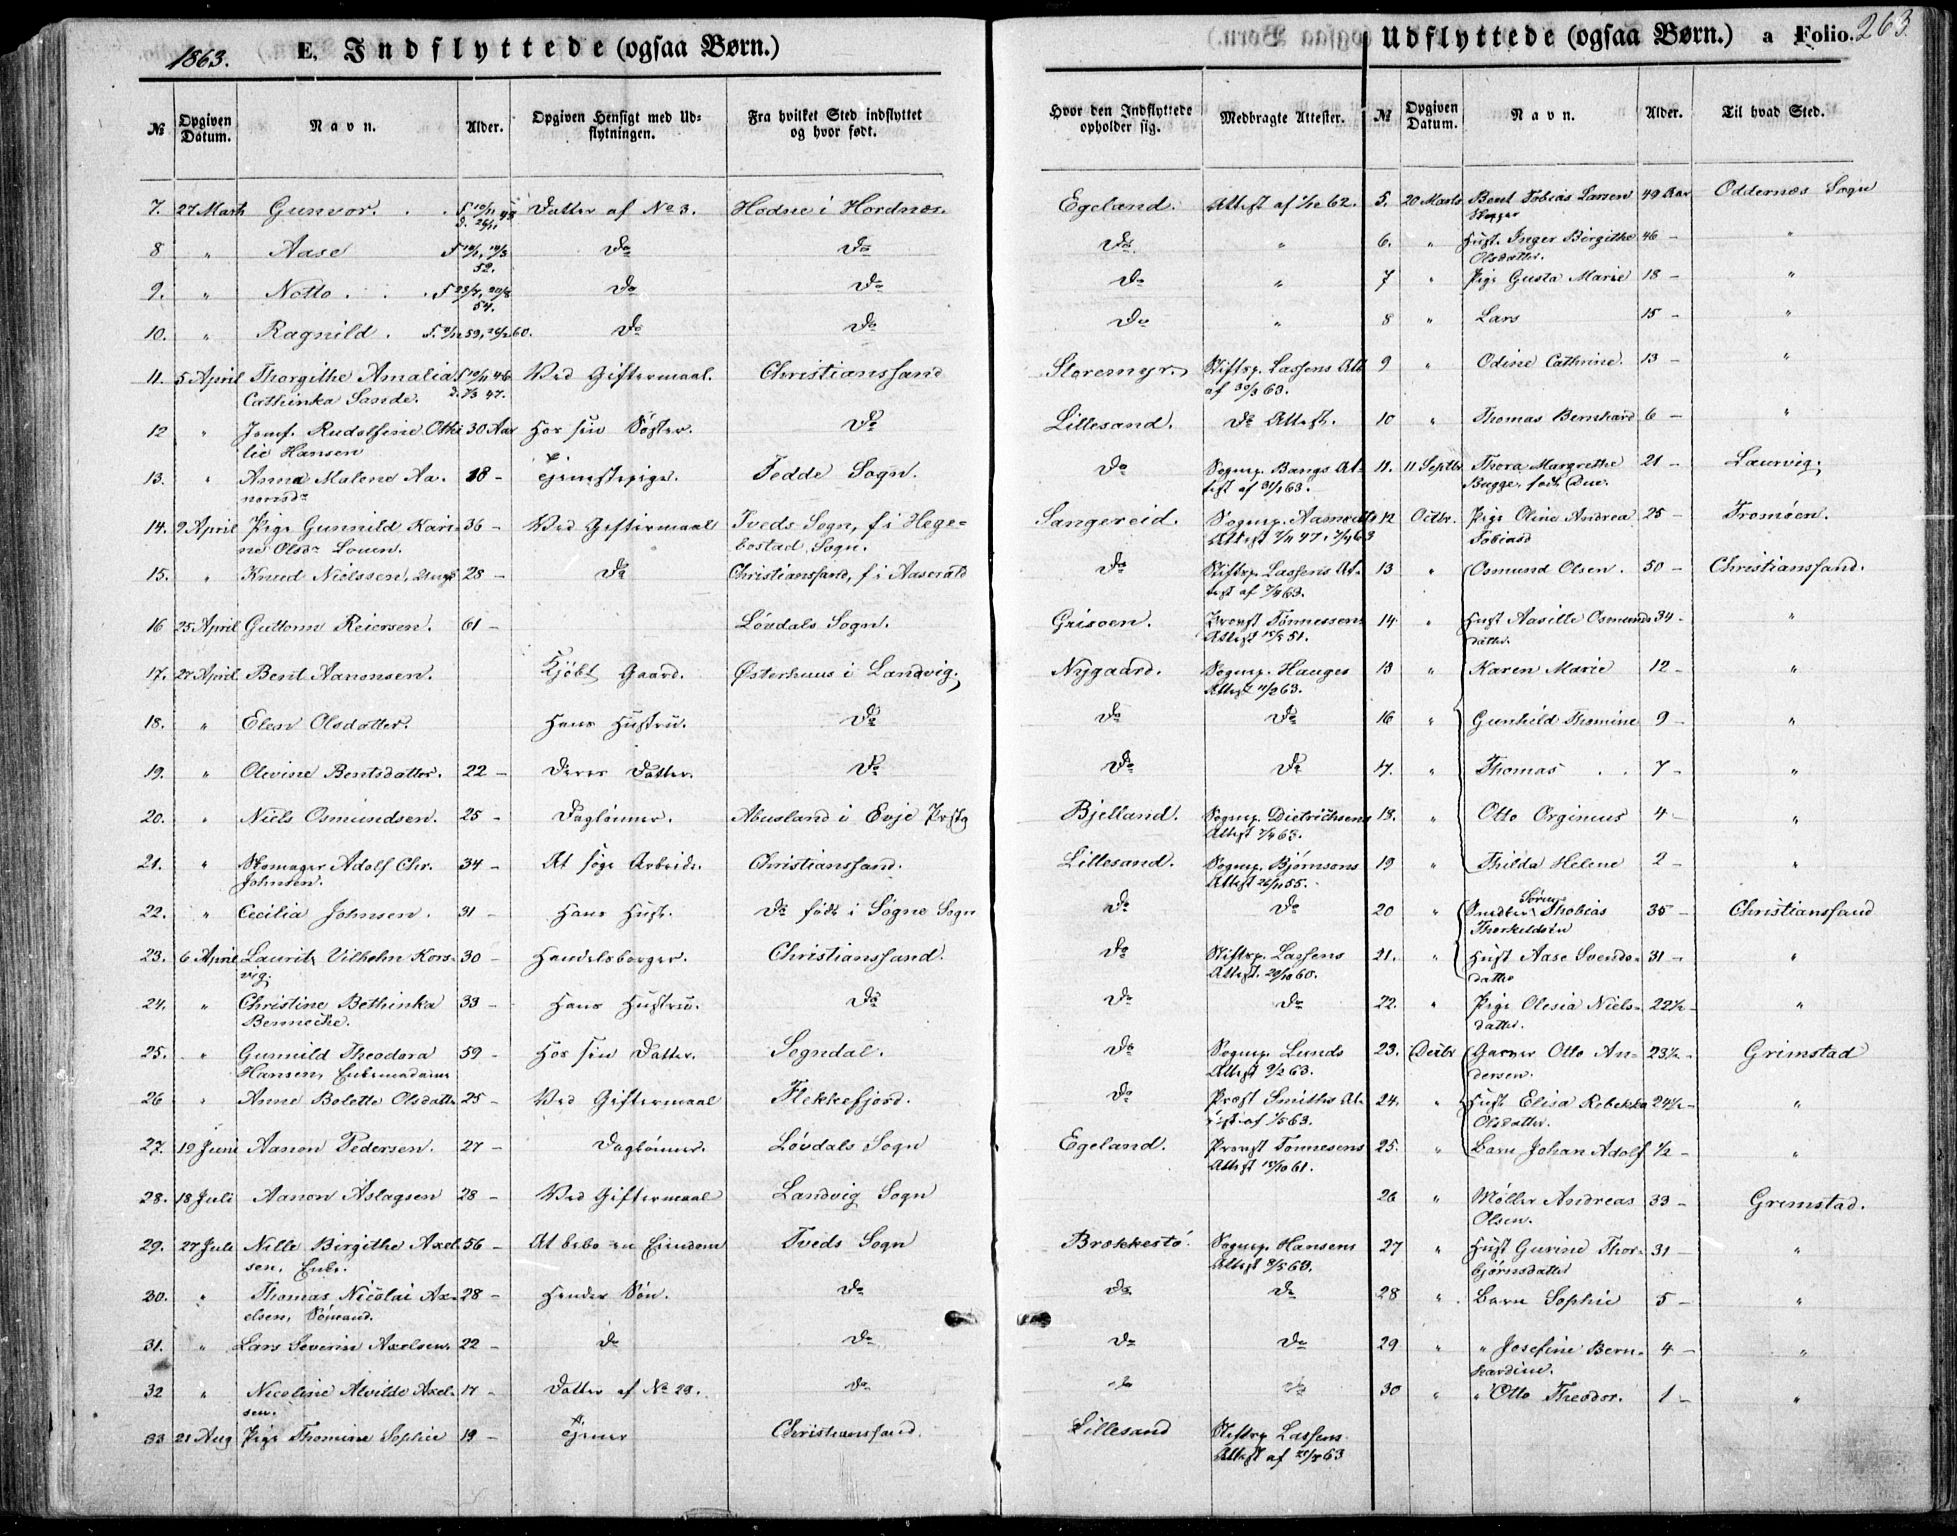 1863. E. Indflyttede (ogsaa Børn.) Udflyttede (ogsaa Børn.) a Folio. 263.
№ Opgiven Datum. Navn. Alder. Opgiven Hensigt med Udflytningen. Fra hvilket Sted indflyttet og hvor født. Hvor den Indflyttede opholder sig. Medbragte Attester. № Opgiven Datum. Navn. Alder. Til hvad Sted.
7. 27 Marts Gunvor. Datter af No 3. Hodne i Hordnæs. Egeland. Attest af 62. 5. 20 Marts Bent Tobias Larsen 49 Aar Oddernæs Sogn
8 " Aase Do Do Do " 6. " Hust. Inger Birgithe Olsdatter. 46 - "
9. " Notto Do Do Do " 7 " Pige Gusta Marie 18 - "
10. " Ragnild. Do Do Do " 8 " Lars 15 - "
11. 5 April Thorgithe Amalia Cathinka Sande. Ved Giftermaal. Christianssand Storemyr. Stiftsp. Lassens Att. af 30/3 63. 9 " Odine Cathrine. 13 - "
12 " Jomf. Rudolfine Othilie Hansen 30 Aar Hos sin Søster. Do Lillesand. Do Attest. 10 " Thomas Bernhard 6 - "
13. " Anna Malene Aanonsdr 18 - Tjenestepige. Fedde Sogn. Do Sognep. Bangs Attest af 31/1 63. 11. 11 Septbr Thora Margrethe Bugge, født Due. 21 - Laurvig.
14. 9 April Pige Gunnild Karine Olsdr Louen. 36 - Ved Giftermaal Tveds Sogn, f. i Hegebostad Sogn. Sangereid. Sognep. Attest 12 Octbr. Pige Oline Andrea Tobiasd 25 - Tromøen.
15. " Knud Nielssen, Ungk 28 - Do Christianssand, f. i Aaserald Do Stiftsp. Lassens Attest af 63. 13 " Osmund Olsen. 50 - Christianssand.
16 25 April Guttorm Reiersen. 61 - Løvdals Sogn. Grisøen. Provst Tønnessens Attest 51. 14 " Hust Aasille Osmundsdatter 34 - "
17. 27 April Bent Aanonsen. Kjøbt Gaard. Østerhuus i Landvig. Nygaard. Sognep. Hauges Attest 63. 15 " Karen Marie 12 - "
18. " Elen Olsdatter. Hans Hustru. Do Do Do 16 " Gunhild Thomine 9 - "
19. " Olevine Bentsdatter. 22 - Deres Datter. Do Do Do 17. " Thomas 7 - "
20. " Niels Osmundsen. 25 - Daglønner. Abusland i Evje Prstg Bjelland. Sognep. Dietrichsens Attest 63. 18. " Otto Orginius 4 - "
21. " Skomager Adolf Chr. Johnsen. 34 - At søge Arbeide. Christianssand. Lillesand. Sognep. Bjørnsons Attest 55. 19 " Thilda Helene 2 - "
22. " Cecilia Johnsen. 31 - Hans Hust. Do født i Søgne Sogn Do Do 20 " Snedker Søren Thobias Thorkeldsen 35 - Christianssand
23. 6 April Laurits Vilhelm Korsvig. 30 - Handelsborger. Christianssand. Do Stiftsp. Lassens Attest. 60. 21. " Hust Aase Svendsdatter 31 - "
24. " Christine Bethinka Bennecke. 33 - Hans Hustru. Do Do Do 22. " Pige Olesia Nielsdatter. 22½ - "
25. " Gunnild Theodora Hansen, Enkemadame 59 - Hos sin Datter. Sogndal. Do Sognep. Lunds Attest 63. 23. Decbr Garver Otto Andersen. 23½ - Grimstad
26 " Anne Bolette Olsdatter 25 - Ved Giftermaal Flekkefjord. Do Præst Smiths Attest af 63. 24. " Hust Elisa Rebekka Olsdatter. 24½ - "
27. 19 Juni Aanon Pedersen. 27 - Daglønner. Løvdals Sogn Egeland. Provst Tønnesens Attest 61. 25. " Barn Johan Adolf ½ - "
28. 18 Juli Aanon Aslagsen 28 - Ved Giftermaal Landvig Sogn 26 " Møller Andreas Olsen. 33 - Grimstad.
29. 27 Juli Nille Birgithe Axelsen, Enke. 56 - At bebo en Eiendom Tveds Sogn Brekkestø. Sognep. Hansens Attest 63. 27 " Hust Gurine Thorbjørnsdatter 31 - "
30. " Thomas Nicolai Axelsen, Sømand. 28 - Hendes Søn. Do Do Do 28 " Barn Sophie 5 - "
31. " Lars Severin Axelsen. 22 - Do Do Do Do 29 " " Josefine Bernhardine. 4 - "
32 " Nicoline Alvilde Axelsen. 17 - Datter af No 29. Do Do Do 30 " " Otto Theodor. 1 - "
33 21 Aug Pige Thomine Sophie 19 - Tjener Christianssand. Lillesand Stiftsp Lassens Attest af 63